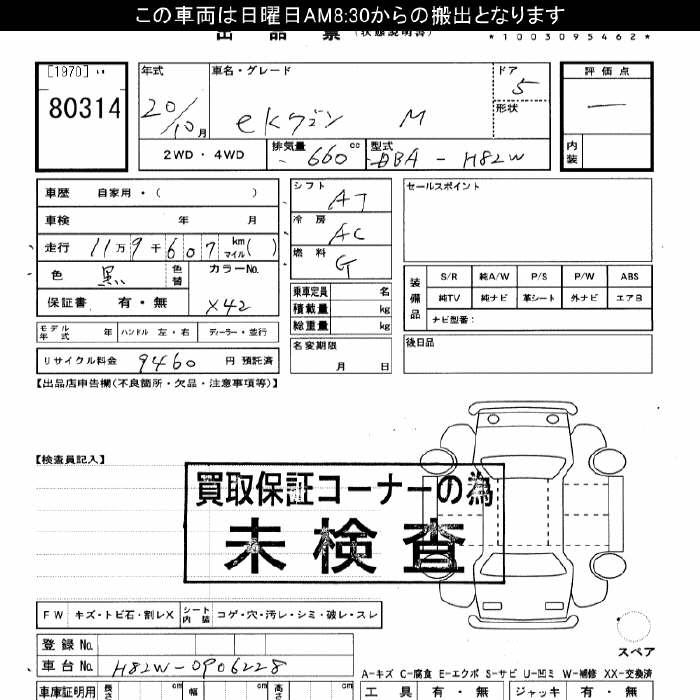 この車両は日曜日AM8:30からの搬出となります
出品票 (状態説明書)
*1003095462*
[1970]
80314
年式 車名・グレード ドア 評価点
20/10月 eKワゴン M 5 —
形状
2WD・4WD 排気量 660cc 型式 DBA-H82W 内装
車歴 自家用・( )
車検 年 月
走行 11万9千607km マイル( )
色 黒 色替 カラーNo. X42
保証書 有・無
モデル年式 年 ハンドル 左・右 ディーラー・並行
リサイクル料金 9460 円 預託済
シフト AT
冷房 AC
燃料 G
乗車定員 名
積載量 kg
総重量 kg
名変期限
月 日
セールスポイント
装備品 S/R 純A/W P/S P/W ABS
純TV 純ナビ 革シート 外ナビ エアB
ナビ型番:
後日品
【出品店申告欄(不良箇所・欠品・注意事項等)】
【検査員記入】
買取保証コーナーの為
未検査
FW キズ・トビ石・割レX シート内装 コゲ・穴・汚レ・シミ・破レ・スレ
登録No.
車台No. H82W-0906228
スペア
A-キズ C-腐食 E-エクボ S-サビ U-凹ミ W-補修 XX-交換済
車庫証明用 長さ cm 幅 cm 高さ cm 工具 有・無 ジャッキ 有・無